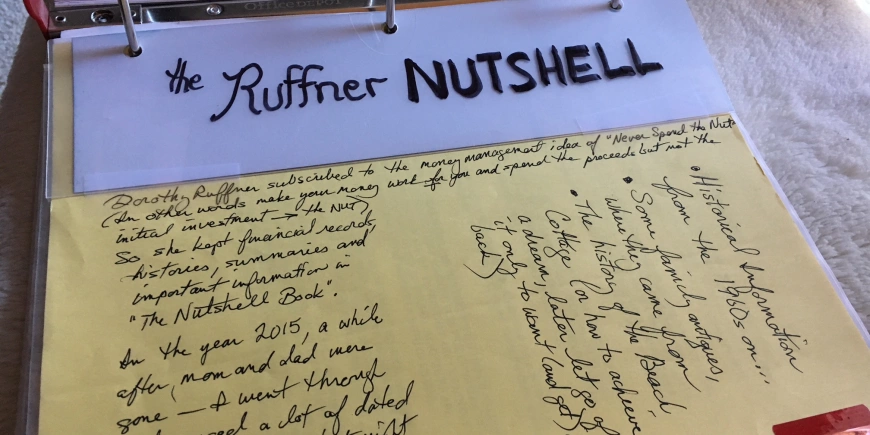 OfficeDEPOT
the Ruffner NUTSHELL
Dorothy Ruffner subscribed to the money management idea of "Never Spend the Nut"
(In other words make your money work for you and spend the proceeds but not the
initial investment → the NUT)
So she kept financial records,
histories, summaries and
important information in
"The Nutshell Book".
In the year 2015, a while
after mom and dad were
gone — I went through
a lot of dated
• Historical Information
from the 1960s on...
• Some family antiques,
where they came from
• The history of the Beach
Cottage (or how to achieve
a dream, later let go of
it only to want (and get)
back)